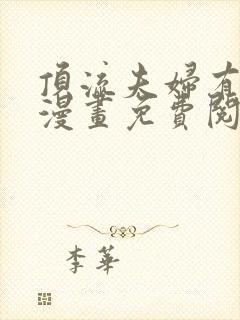 頂流夫婦有
漫畫免費閱
李華